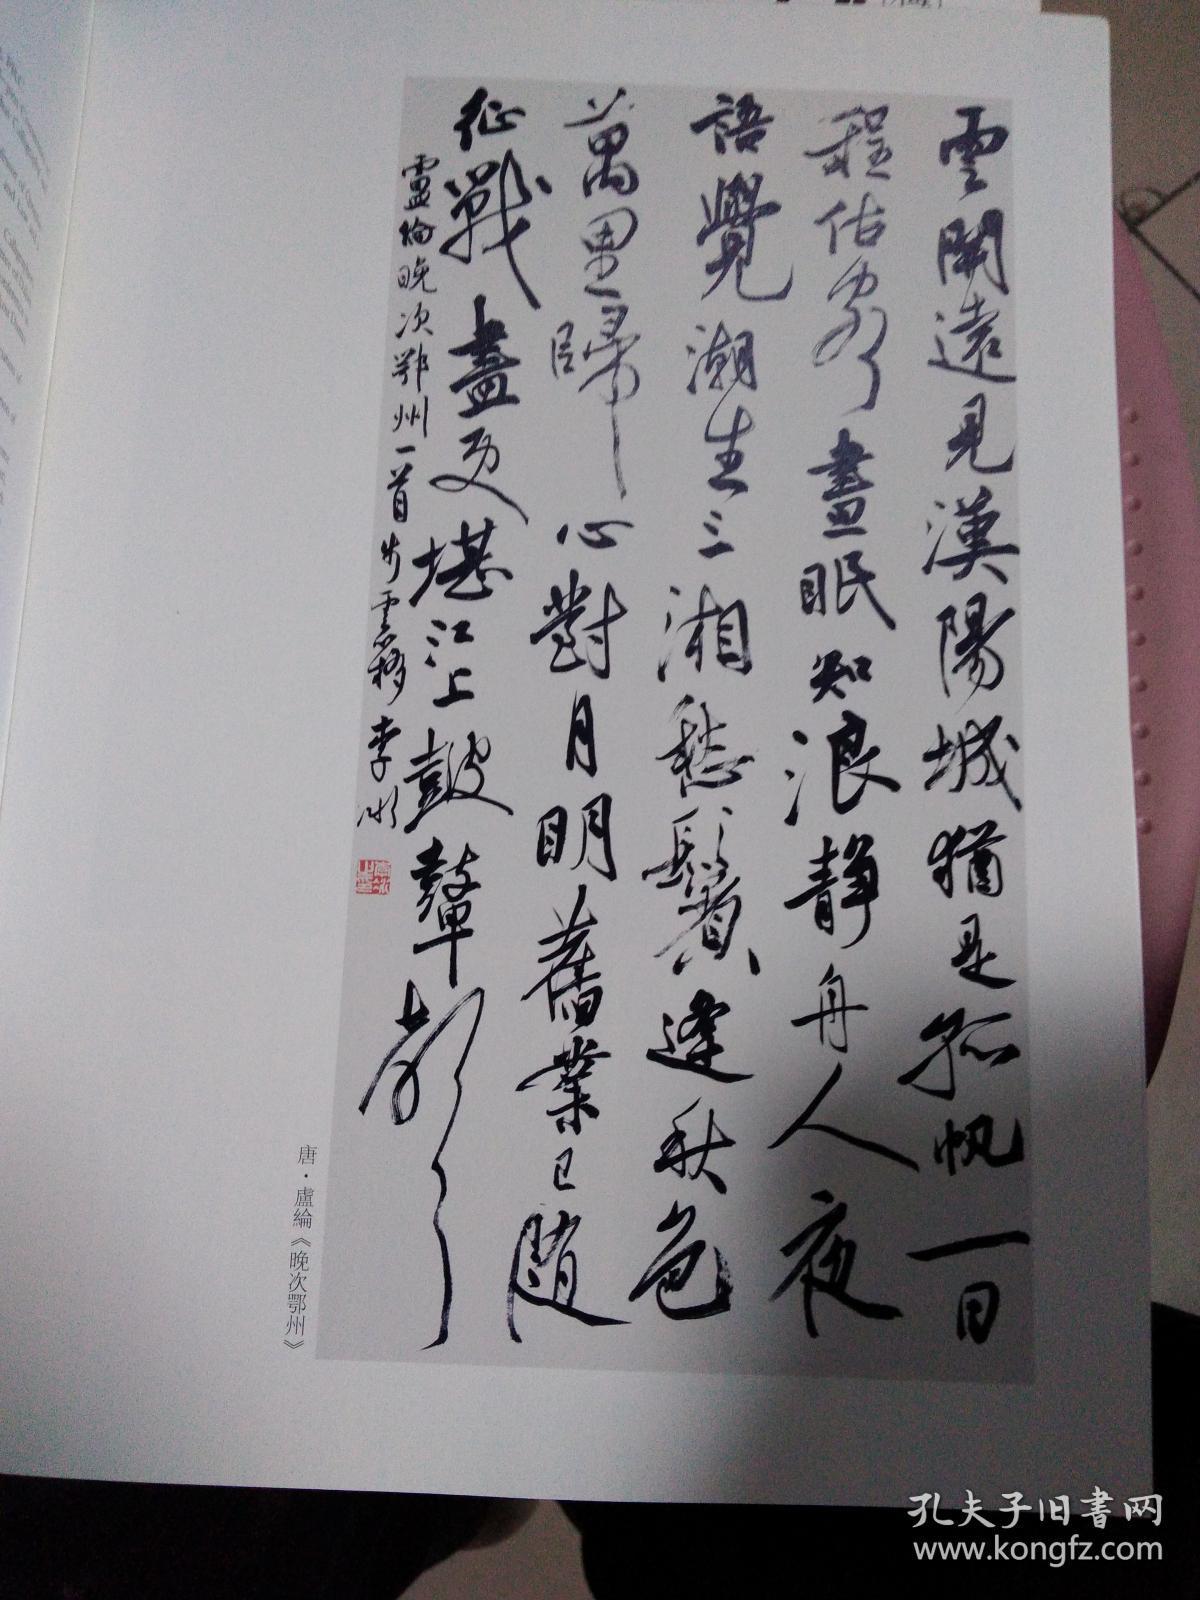 雲開遠見漢陽城猶是孤帆一日
程估客晝眠知浪静舟人夜
語覺潮生三湘愁鬢逢秋色
萬里歸心對月明舊業已随
征戰盡更堪江上鼓鼙聲
盧倫晚次鄂州一首 步雲移 李冰
唐·盧綸《晚次鄂州》
孔夫子旧書网
www.kongfz.com